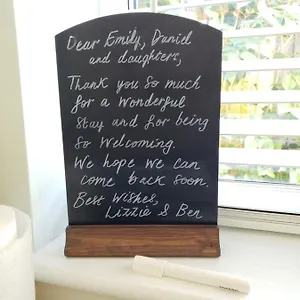 Dear Emily, Daniel
and daughters,
Thank you so much
for a wonderful
stay and for being
so welcoming.
We hope we can
come back soon.
Best Wishes,
Lizzie & Ben